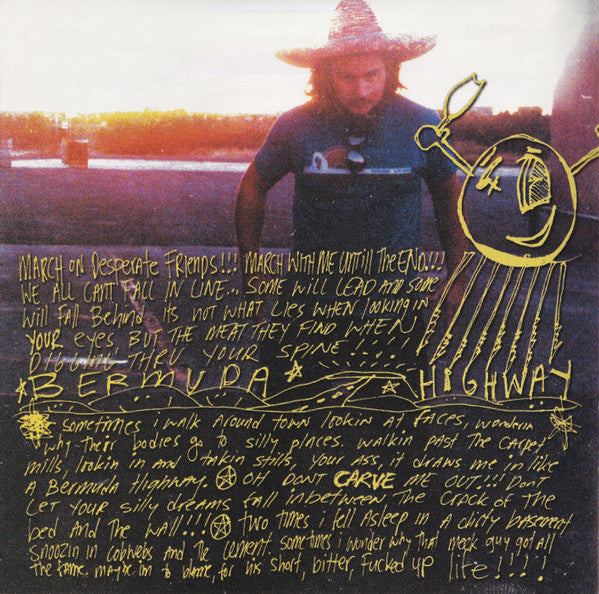 MARCH ON Desperate Friends!!! MARCH WITH ME UNTILL The END!!!
WE ALL CANT FALL IN LINE... SOME WILL LEAD AND SOME
Will Fall Behind. its NOT WHAT Lies WHEN looking in
YOUR eyes, BUT THE MEAT THEY FIND WHEN
DIGGING THRU YOUR SPINE!!!!
BERMUDA HIGHWAY
sometimes i walk Around town lookin At faces, wonderin
why their bodies go to silly places. Walkin past The carpet
mills, lookin in and takin stills, your ass, it draws me in like
A Bermuda Highway. OH DONT CARVE ME OUT!!! DONT
LET YOUR silly dreams fall inbetween The Crack of The
bed And The WAll!!! two times i fell Asleep in A dirty basement
snoozin in cobwebs And The cement. sometimes i wonder why That meek guy got all
The fame. maybe im to blame, for his short, bitter, fucked up life!!!!